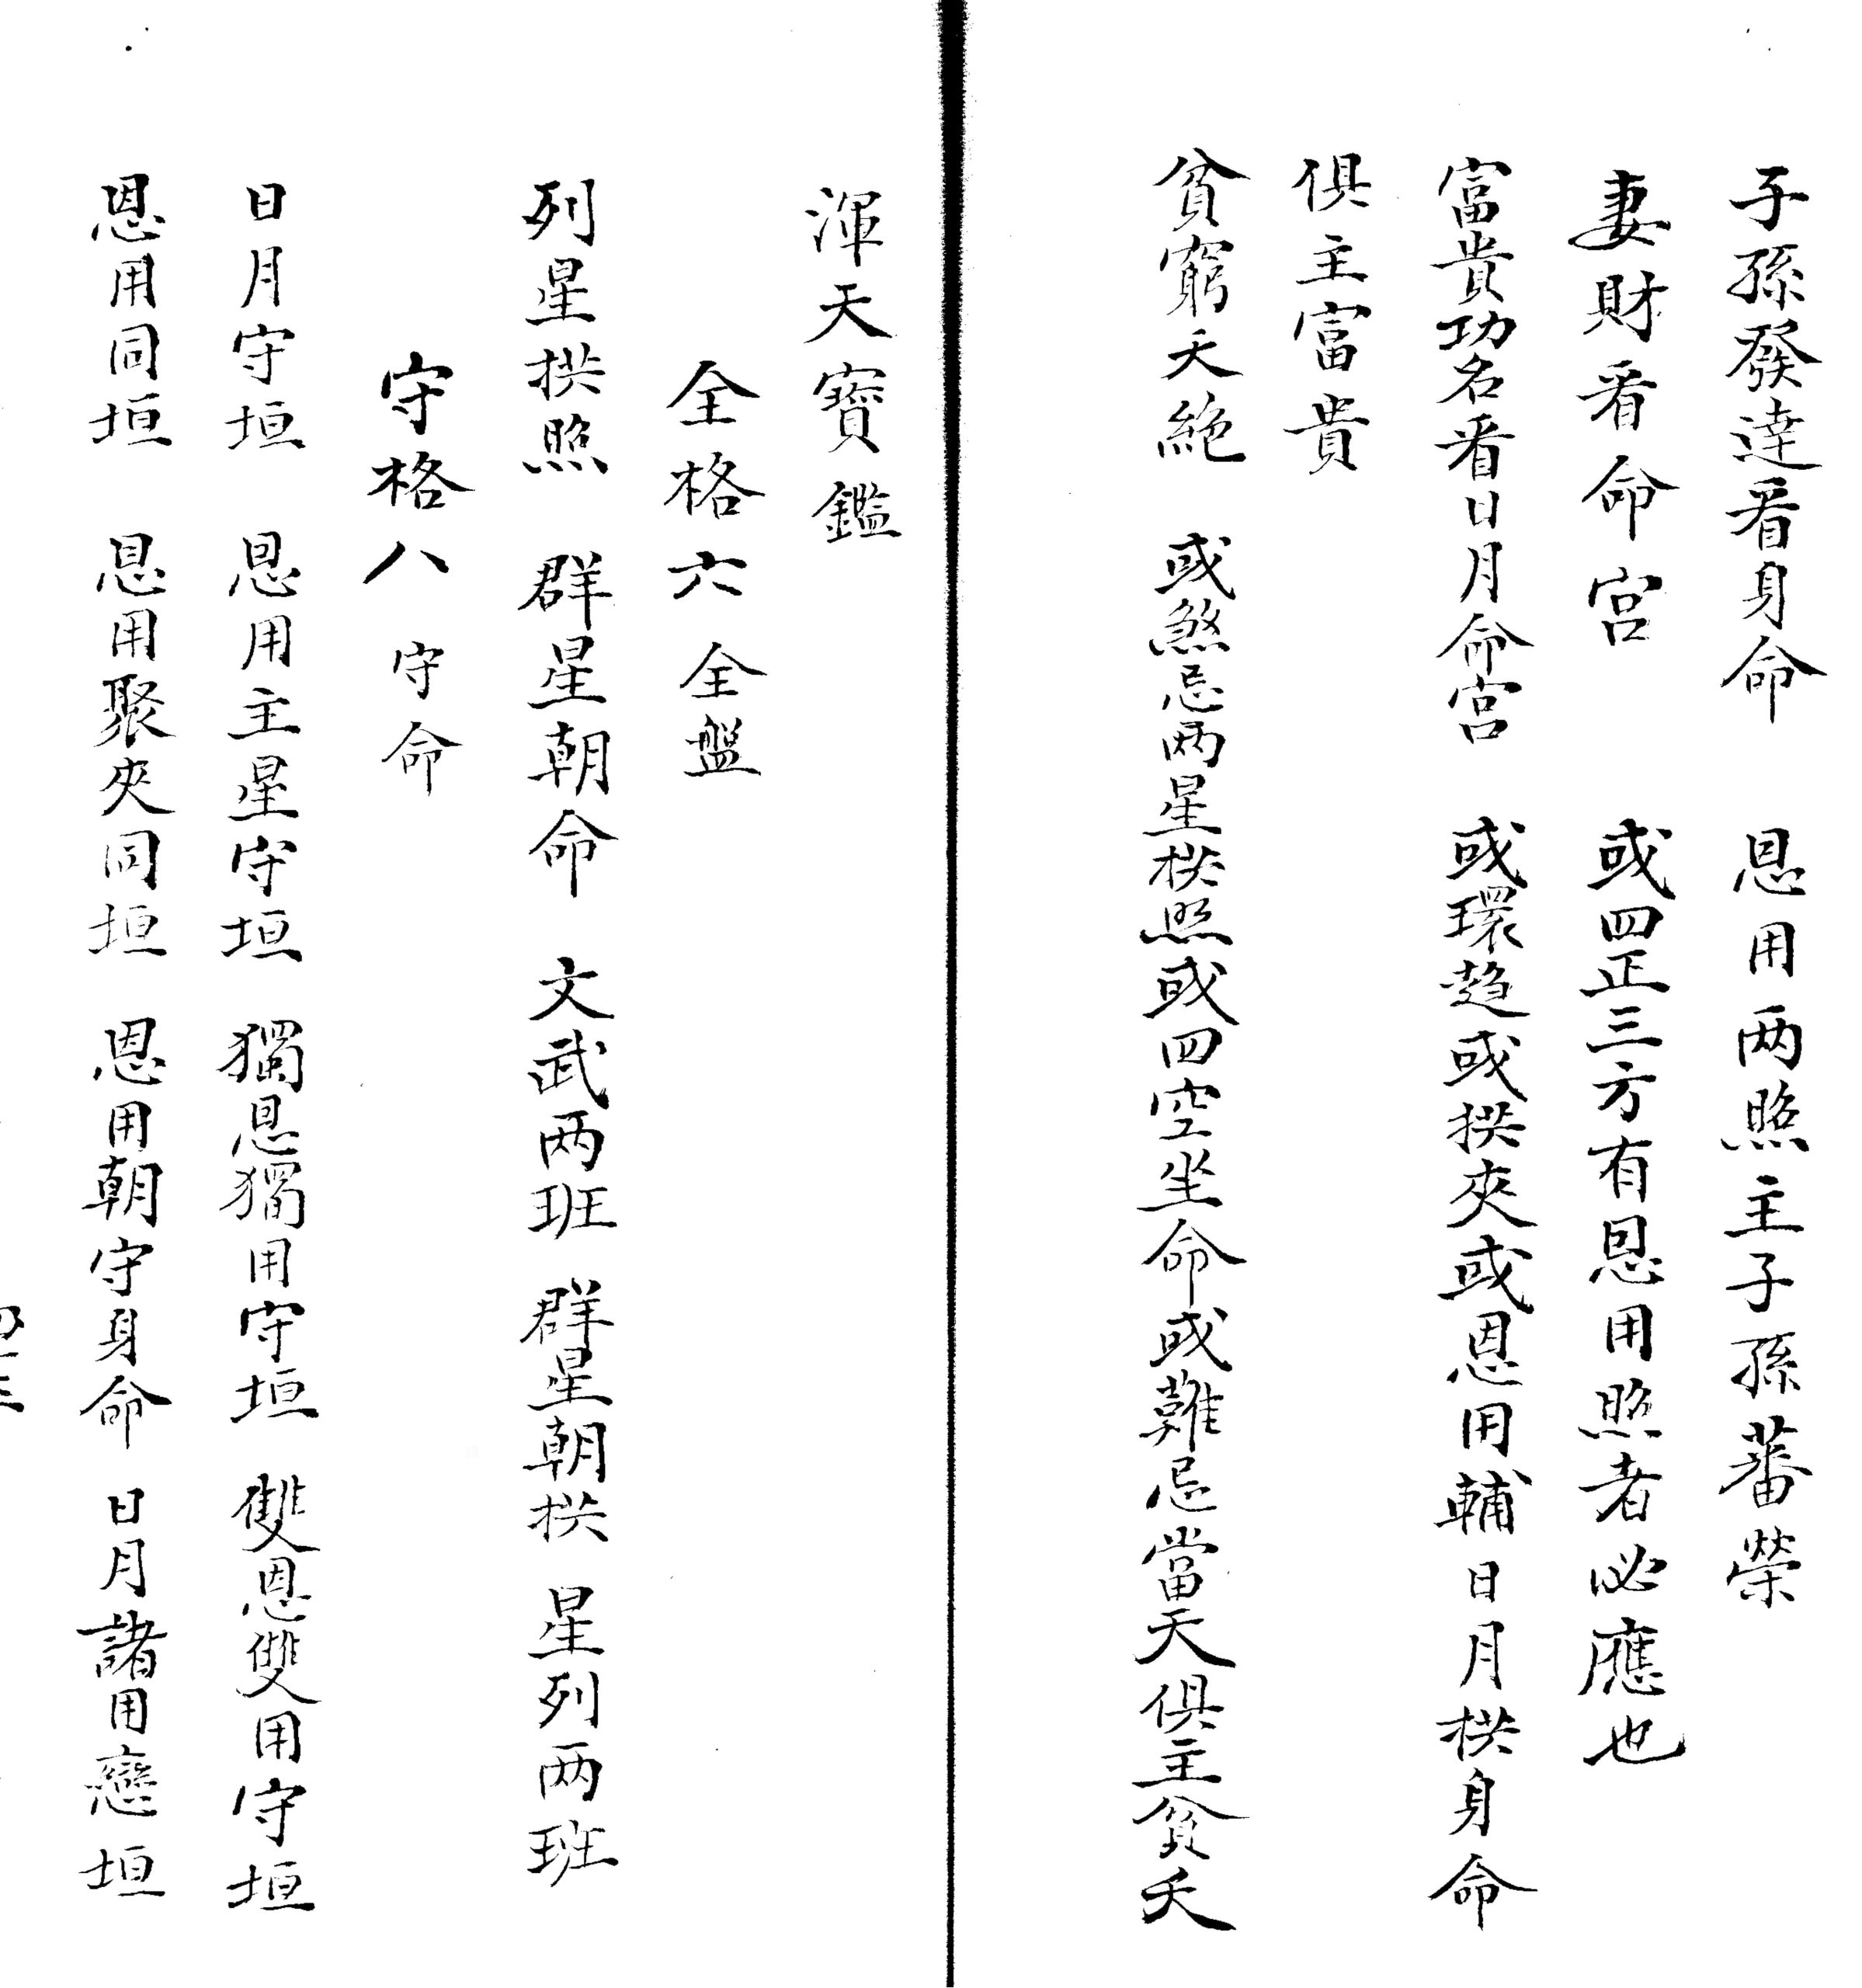 子孫發達看身命　恩用两照主子孫蕃榮
妻財看命宮　或四正三方有恩用照者必應也
富貴功名看日月命宮　或環趋或拱夾或恩用輔日月拱身命
俱主富貴
貧窮夭絶　或煞忌两星拱照或四空坐命或難忌當天俱主貧夭
渾天寳鑑
全格六　全盤
列星拱照　群星朝命　文武两班　群星朝拱　星列两班
守格八　守命
日月守垣　恩用主星守垣　獨恩獨用守垣　雙恩雙用守垣
恩用同垣　恩用聚夾同垣　恩用朝守身命　日月諸用戀垣